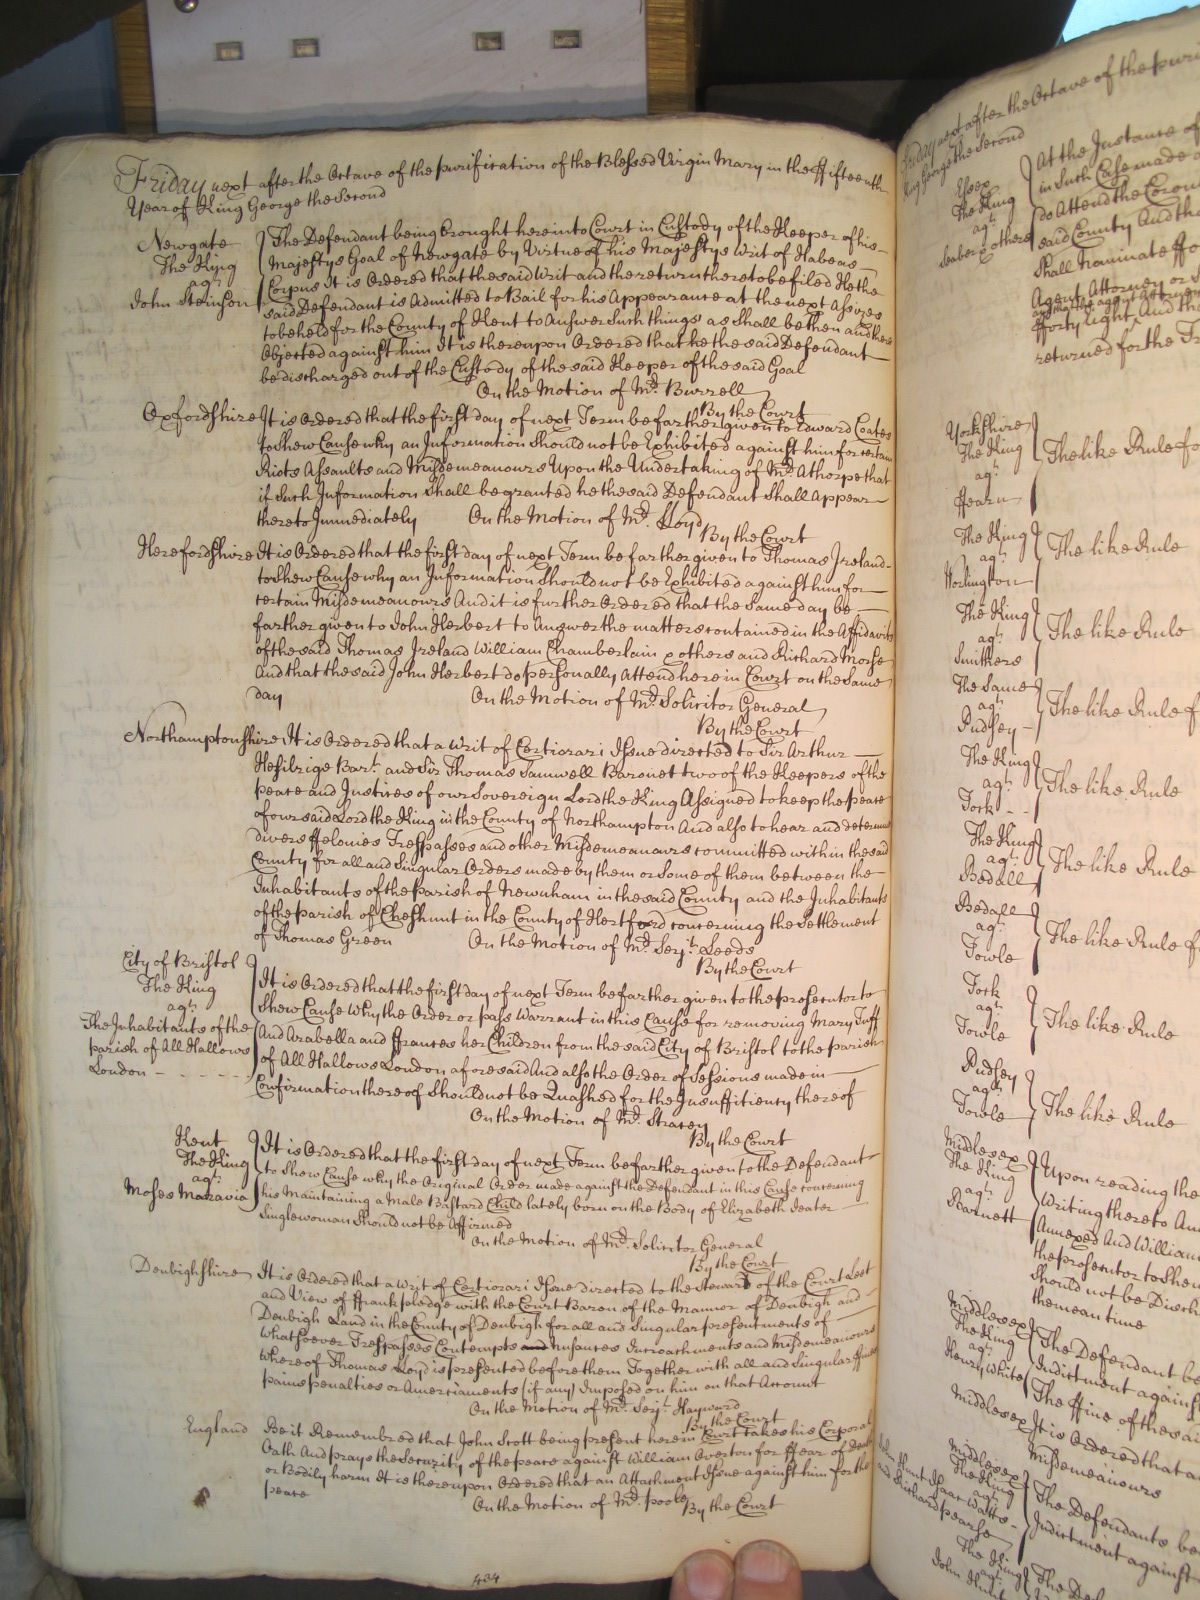 Friday next after the Octave of the purification of the Blessed Virgin Mary in the ffifteenth
Year of King George the Second
Newgate
The King
agt.
John Steinson
The Defendant being brought here into Court in Custody of the Keeper of his
Majestys Goal of Newgate by Virtue of his Majestys Writ of Habeas
Corpus It is Ordered that the said Writ and the return thereto be filed He the
said Defendant is Admitted to Bail for his Appearance at the next Assizes
to be held for the County of Kent to Answer Such things as Shall be then and there
Objected against him It is thereupon Ordered that he the said Defendant
be discharged out of the Custody of the said Keeper of the said Goal
On the Motion of Mr. Burrell
By the Court
Oxfordshire It is Ordered that the first day of next Term be farther given to Edward Coates
to shew Cause why an Information Should not be Exhibited against him for certain
Riots Assaults and Misdemeanours Upon the Undertaking of Mr. Athorpe that
if Such Information Shall be granted he the said Defendant Shall Appear
thereto Immediately On the Motion of Mr. Lloyd
By the Court
Herefordshire It is Ordered that the first day of next Term be farther given to Thomas Ireland
to shew Cause why an Information Should not be Exhibited against him for
certain Misdemeanours And it is further Ordered that the Same day be
farther given to John Herbert to Answer the matters contained in the Affidavits
of the said Thomas Ireland William Chamberlain & others and Richard Morse
And that the said John Herbert do personally Attend here in Court on the Same
day On the Motion of Mr. Solicitor General
By the Court
Northamptonshire It is Ordered that a Writ of Certiorari Issue directed to Sir Arthur
Hesilrige Bart. and Sir Thomas Samwell Baronet two of the Keepers of the
peace and Justices of our Sovereign Lord the King Assigned to keep the peace
of our said Lord the King in the County of Northampton And also to hear and determine
divers ffelonies Trespasses and other Misdemeanours committed within the said
County for all and Singular Orders made by them or Some of them between the
Inhabitants of the parish of Newnham in the said County and the Inhabitants
of the parish of Cheshunt in the County of Hertford concerning the Settlement
of Thomas Green On the Motion of Mr. Serjt. Leeds
By the Court
City of Bristol
The King
agt.
The Inhabitants of the
parish of All Hallows
London
It is Ordered that the first day of next Term be farther given to the prosecutor to
Shew Cause Why the Order or pass Warrant in this Cause for removing Mary Tuff
And Arabella and ffrances her Children from the said City of Bristol to the parish
of All Hallows London aforesaid And also the Order of Sessions made in
Confirmation thereof Should not be Quashed for the Insufficiency thereof
On the Motion of Mr. Stracey
By the Court
Kent
The King
agt.
Moses Maravia
It is Ordered that the first day of next Term be farther given to the Defendant
to Shew Cause why the Original Order made against the Defendant in this Cause concerning
his Maintaining a Male Bastard Child lately born on the Body of Elizabeth Deater
Singlewoman Should not be Affirmed
On the Motion of Mr. Solicitor General
By the Court
Denbighshire It is Ordered that a Writ of Certiorari Issue directed to the Steward of the Court Leet
and View of ffrankpledge with the Court Baron of the Mannor of Denbigh and
Denbigh Land in the County of Denbigh for all and Singular presentments of
Whatsoever Trespasses Contempts Nusances Incroachments and Misdemeanours
Whereof Thomas Loyd is presented before them Together with all and Singular ffines
pains penalties or Amerciaments (if any) Imposed on him on that Account
On the Motion of Mr. Serjt. Hayward
By the Court
England Be it Remembred that John Scott being present here in Court takes his Corporal
Oath And prays the Security of the peace against William Overton for ffear of death
or Bodily harm It is thereupon Ordered that an Attachment Issue against him for the
peace
On the Motion of Mr. poole
By the Court
434
Friday next after the Octave of the puri
King George the Second
Essex
The King
agt.
others
At the Instance of
in Such Case made
do Attend the Coron
said County And tha
Shall Nominate ffo
Agent Attorney or
fforty Eight And th
returned for the Tr
Yorkshire
The King
agt.
ffearn
The like Rule fo
The King
agt.
Worlington
The like Rule
The King
agt.
Smithers
The like Rule
The Same
agt.
Pudsey
The like Rule f
The King
agt.
Tork
The like Rule
The King
agt.
Bedall
The like Rule
Bedall
agt.
Towle
The like Rule f
Tork
agt.
Towle
The like Rule
Pudsey
agt.
Towle
The like Rule
Middlesex
The King
agt.
Barnett
Upon reading the
Writing thereto An
Annexed And William
the prosecutor to Shew
Should not be Disch
the mean time
Middlesex
The King
agt.
Henry White
The Defendant be
Indictment against
The ffine of the sai
Middlesex It is Ordered that a
Misdemeanours
Middlesex
The King
agt.
John Hunt Isaac Watts
and Richard pearse
The Defendants be
Indictment against
The King
agt.
John Hunt
The Def